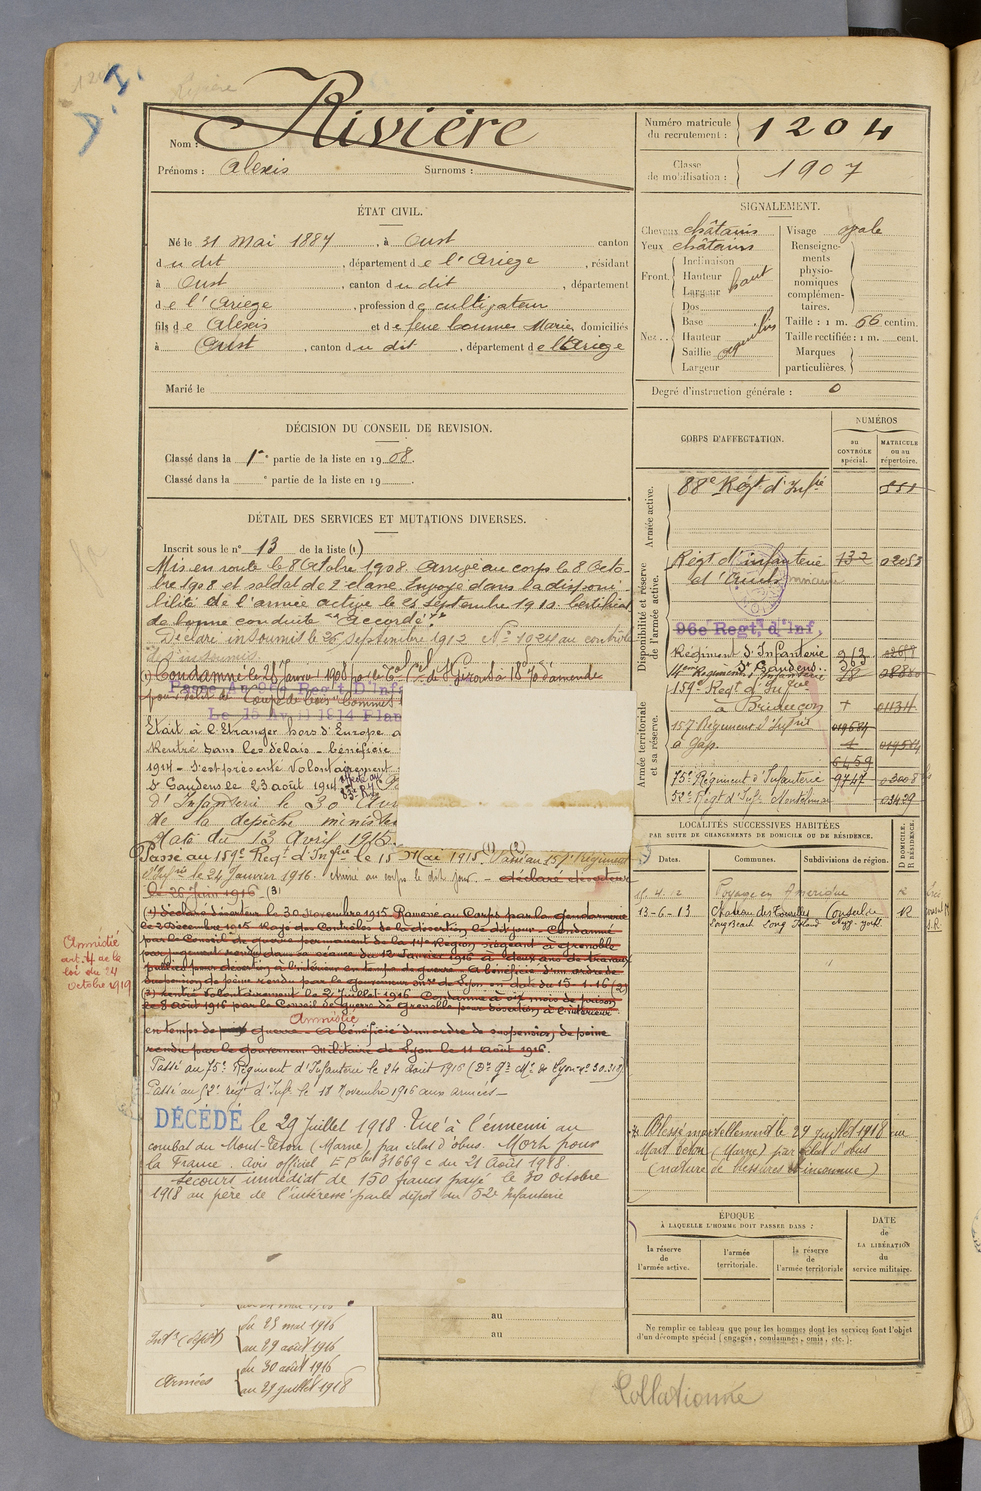 D. I.
Nom : Rivière
Prénoms : Alexis Surnoms :
Numéro matricule du recrutement : 1204
Classe de mobilisation : 1907
ÉTAT CIVIL.
Né le 31 Mai 1887, à Oust canton
du dit, département de l'Ariège, résidant
à Oust, canton du dit, département
de l'Ariège, profession de cultivateur
fils de Alexis et de feue Marie domiciliés
à Oust, canton du dit, département de l'Ariège
Marié le
SIGNALEMENT.
Cheveux châtains
Yeux châtains
Front. Inclinaison
Hauteur haut
Largeur
Nez.. Dos
Base
Hauteur
Saillie
Largeur
Visage ovale
Renseignements physionomiques complémentaires.
Taille : 1 m. 66 centim.
Taille rectifiée : 1 m. cent.
Marques particulières.
Degré d'instruction générale : 0
DÉCISION DU CONSEIL DE REVISION.
Classé dans la 1re partie de la liste en 1908.
Classé dans la e partie de la liste en 19 .
DÉTAIL DES SERVICES ET MUTATIONS DIVERSES.
Inscrit sous le n° 13 de la liste (1)
Mis en route le 8 Octobre 1908. Arrivé au corps le 8 Octo-
bre 1908 et soldat de 2e classe. Envoyé dans la disponi-
bilité de l'armée active le 25 septembre 1910. Certificat
de bonne conduite "Accordé".
Déclaré insoumis le 26 septembre 1912 N° 1024 au contrôle
d'insoumis.
(1) Condamné le 28 Janvier 1908 par le
Passé Au 96e Regt D'Inf
Le 15 Avril 1914
Etait à l'Etranger hors d'Europe
Rentré dans les délais - bénéficie
1914 - S'est présenté volontairement
St Gaudens le 23 août 1914
d'Infanterie le 30
de la dépêche minister
date du 13 Avril 1915.
Passé au 159e Regt d'Infrie le 15 Mai 1915. (1) (2) Passé au 157e Régiment
d'Infrie le 24 Janvier 1916. Arrivé au corps le dit jour. - déclaré déserteur
le 26 Juin 1916 (3)
(1) Déclaré déserteur le 30 Novembre 1915. Ramené au Corps par la gendarmerie
le 2 Décembre 1915. Rayé des Contrôles de la désertion le dit jour - Condamné
par le Conseil de guerre permanent de la 14e Région siégeant à Grenoble
par jugement rendu dans sa séance du 12 Janvier 1916 à deux ans de travaux
publics pour désertion à l'intérieur en temps de guerre. A bénéficié d'un ordre de
suspension de peine rendu par le gouverneur mre de Lyon en date du 15-1-16 (2)
(3) Rentré volontairement le 2 Juillet 1916. Condamné à dix mois de prison
le 8 août 1916 par le Conseil de guerre de Grenoble pour désertion à l'intérieur
Amnistié
en temps de guerre - A bénéficié d'un ordre de suspension de peine
rendu par le gouverneur militaire de Lyon le 11 août 1916.
Amnistié
art. 4 de la
loi du 24
octobre 1919
Passé au 75e Régiment d'Infanterie le 24 août 1916
Passé au 52e régt d'Inf. le 18 Novembre 1916 aux armées -
DÉCÉDÉ le 29 Juillet 1918. Tué à l'ennemi au
combat du Mont-Téton (Marne) par éclat d'obus. Mort pour
la France. Avis officiel E P 31669 c du 21 Août 1918.
Secours immédiat de 150 francs payé le 30 octobre
1918 au père de l'intéressé par le dépôt du 52e Infanterie
Intr (dépôt) du 23 mai 1916
au 29 août 1916
Armées du 30 août 1916
au 29 juillet 1918
CORPS D'AFFECTATION.
NUMÉROS
au CONTRÔLE spécial.
MATRICULE ou au répertoire.
Armée active.
88e Régt d'Infie
Disponibilité et réserve de l'armée active.
Régt d'infanterie 132 02063
96e Regt d'Inf.
Régiment d'Infanterie
St Gaudens
159e Régt d'Infrie
à Briançon + 01134
Armée territoriale et sa réserve.
157 Régiment d'Infrie 019584
à Gap. 019584
6459
75e Régiment d'Infanterie 9747
52e Régt d'Inf. Montélimar 03429
LOCALITÉS SUCCESSIVES HABITÉES
PAR SUITE DE CHANGEMENTS DE DOMICILE OU DE RÉSIDENCE.
Dates. Communes. Subdivisions de région. D DOMICILE. R RÉSIDENCE.
Voyage en Amérique R
13-6-13 Consul de R
Long Beach Long Island New-york
Blessé mortellement le 29 Juillet 1918 au
Mont Téton (Marne) par éclat d'obus
(nature de blessures inconnue)
ÉPOQUE
À LAQUELLE L'HOMME DOIT PASSER DANS :
la réserve de l'armée active.
l'armée territoriale.
la réserve de l'armée territoriale
DATE de LA LIBÉRATION du service militaire.
au
au
Ne remplir ce tableau que pour les hommes dont les services font l'objet
d'un décompte spécial (engagés, condamnés, omis, etc.).
Collationné